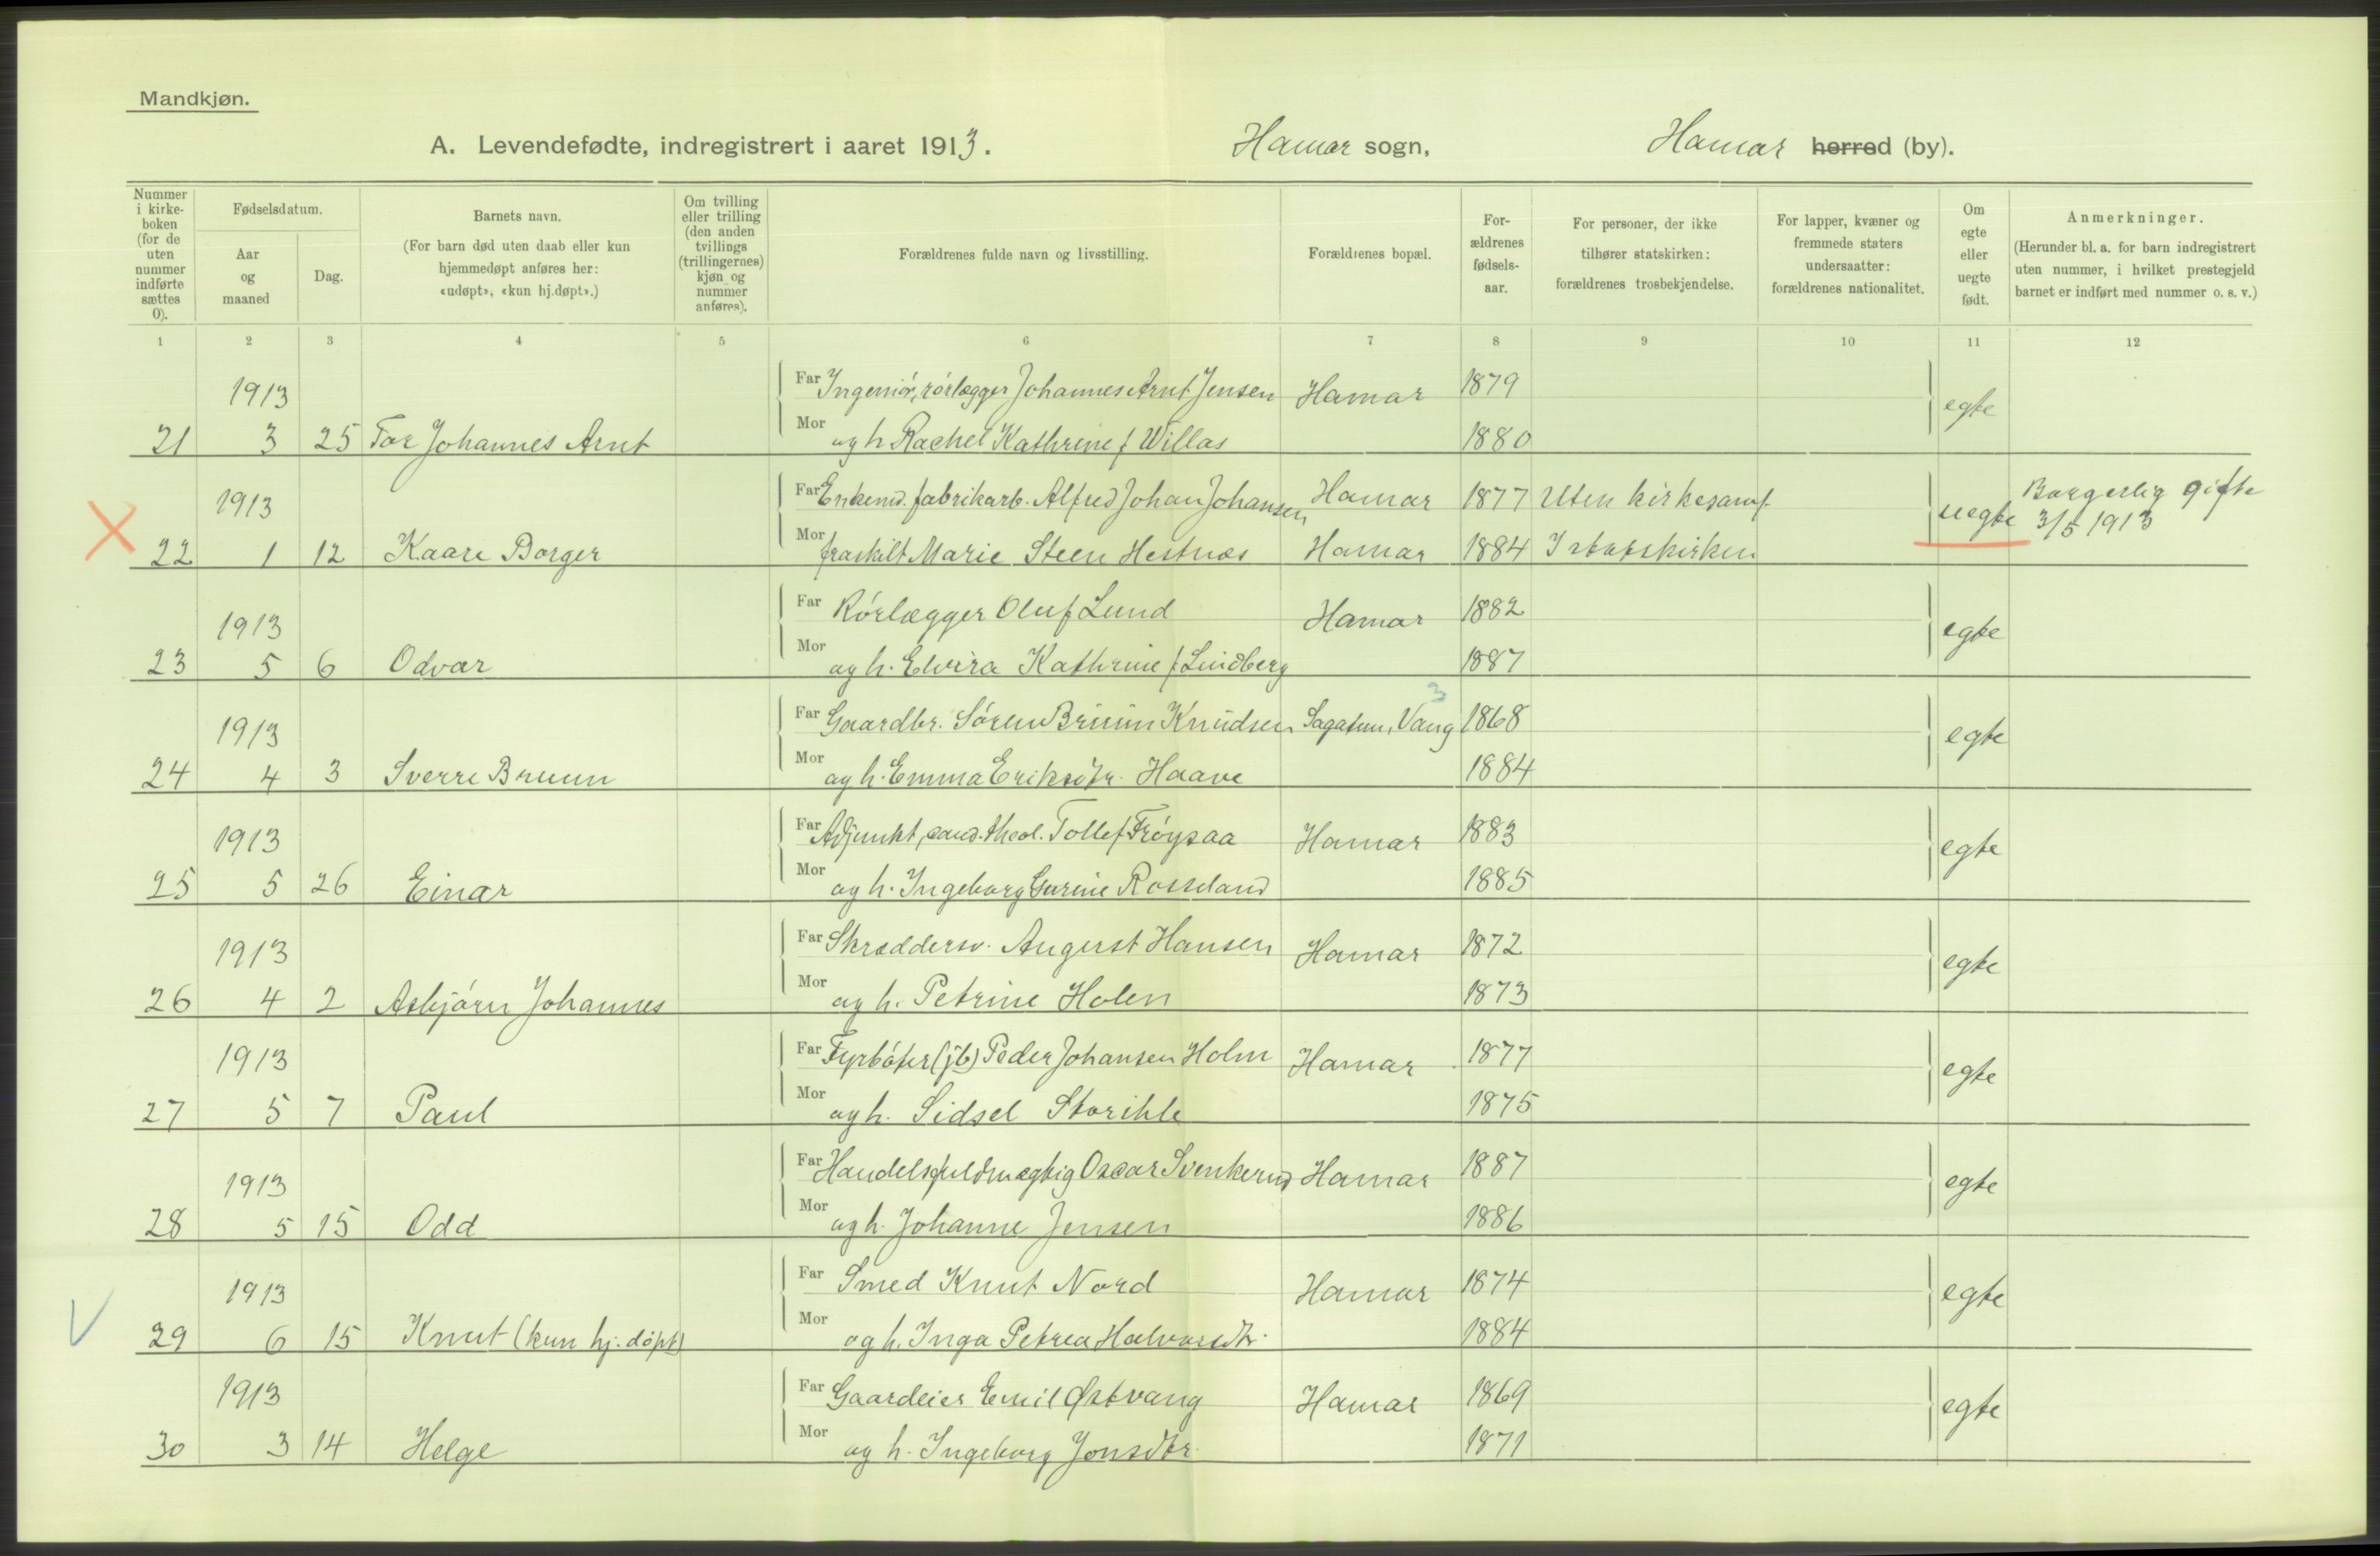 Mandkjøn.
A. Levendefødte, indregistrert i aaret 1913. Hamar sogn, Hamar herred (by).
Nummer i kirke- boken (for de uten nummer indførte sættes 0).
Fødselsdatum.
Aar og maaned
Dag.
Barnets navn.
(For barn død uten daab eller kun hjemmedøpt anføres her: «udøpt», «kun hj.døpt».)
Om tvilling eller trilling (den anden tvillings (trillingernes) kjøn og nummer anføres).
Forældrenes fulde navn og livsstilling.
Forældrenes bopæl.
For- ældrenes fødsels- aar.
For personer, der ikke tilhører statskirken: forældrenes trosbekjendelse.
For lapper, kvæner og fremmede staters undersaatter: forældrenes nationalitet.
Om egte eller uegte født.
Anmerkninger.
(Herunder bl. a. for barn indregistrert uten nummer, i hvilket prestegjeld barnet er indført med nummer o. s. v.)
1 2 3 4 5 6 7 8 9 10 11 12
1913 Far Ingeniør, rørlægger Johannes Arnt Jensen Hamar 1879 egte
21 3 25 Tor Johannes Arnt Mor og h. Rachel Kathrine f Willas 1880
1913 Far Enkem. fabrikarb. Alfred Johan Johansen Hamar 1877 Uten kirkesamf. uegte Borgerlig gifte 3/5 1913
22 1 12 Kaare Borger Mor fraskilt Marie Steen Hestnæs Hamar 1884 I statskirken
1913 Far Rørlægger Oluf Lund Hamar 1882 egte
23 5 6 Odvar Mor og h. Elvira Kathrine f. Lindberg 1887
3
1913 Far Gaardbr. Søren Bruun Knudsen Sagatun, Vang 1868 egte
24 4 3 Sverre Bruun Mor og h. Emma Eriksdtr. Haave 1884
1913 Far Adjunkt, cand. theol. Tollef Frøysaa Hamar 1883 egte
25 5 26 Einar Mor og h. Ingeborg Gurine Rosseland 1885
1913 Far Skræddersv. August Hansen Hamar 1872 egte
26 4 2 Asbjørn Johannes Mor og h. Petrine Holen 1873
1913 Far Fyrbøter (jb) Peder Johansen Holm Hamar 1877 egte
27 5 7 Paul Mor og h. Sidsel Storihle 1875
1913 Far Handelsfuldmægtig Oscar Svenkerud Hamar 1887 egte
28 5 15 Odd Mor og h. Johanne Jensen 1886
1913 Far Smed Knut Nord Hamar 1874 egte
29 6 15 Knut (kun hj. døpt) Mor og h. Inga Petrea Halvorsdtr. 1884
1913 Far Gaardeier Emil Østvang Hamar 1869 egte
30 3 14 Helge Mor og h. Ingeborg Jonsdtr. 1871